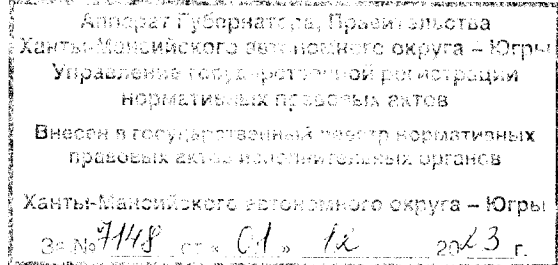 Аппарат Губернатора, Правительства
Ханты-Мансийского автономного округа – Югры
Управление государственной регистрации
нормативных правовых актов
Внесен в государственный реестр нормативных
правовых актов исполнительных органов
Ханты-Мансийского автономного округа – Югры
За № 7148 от « 01 » 12 2023 г.